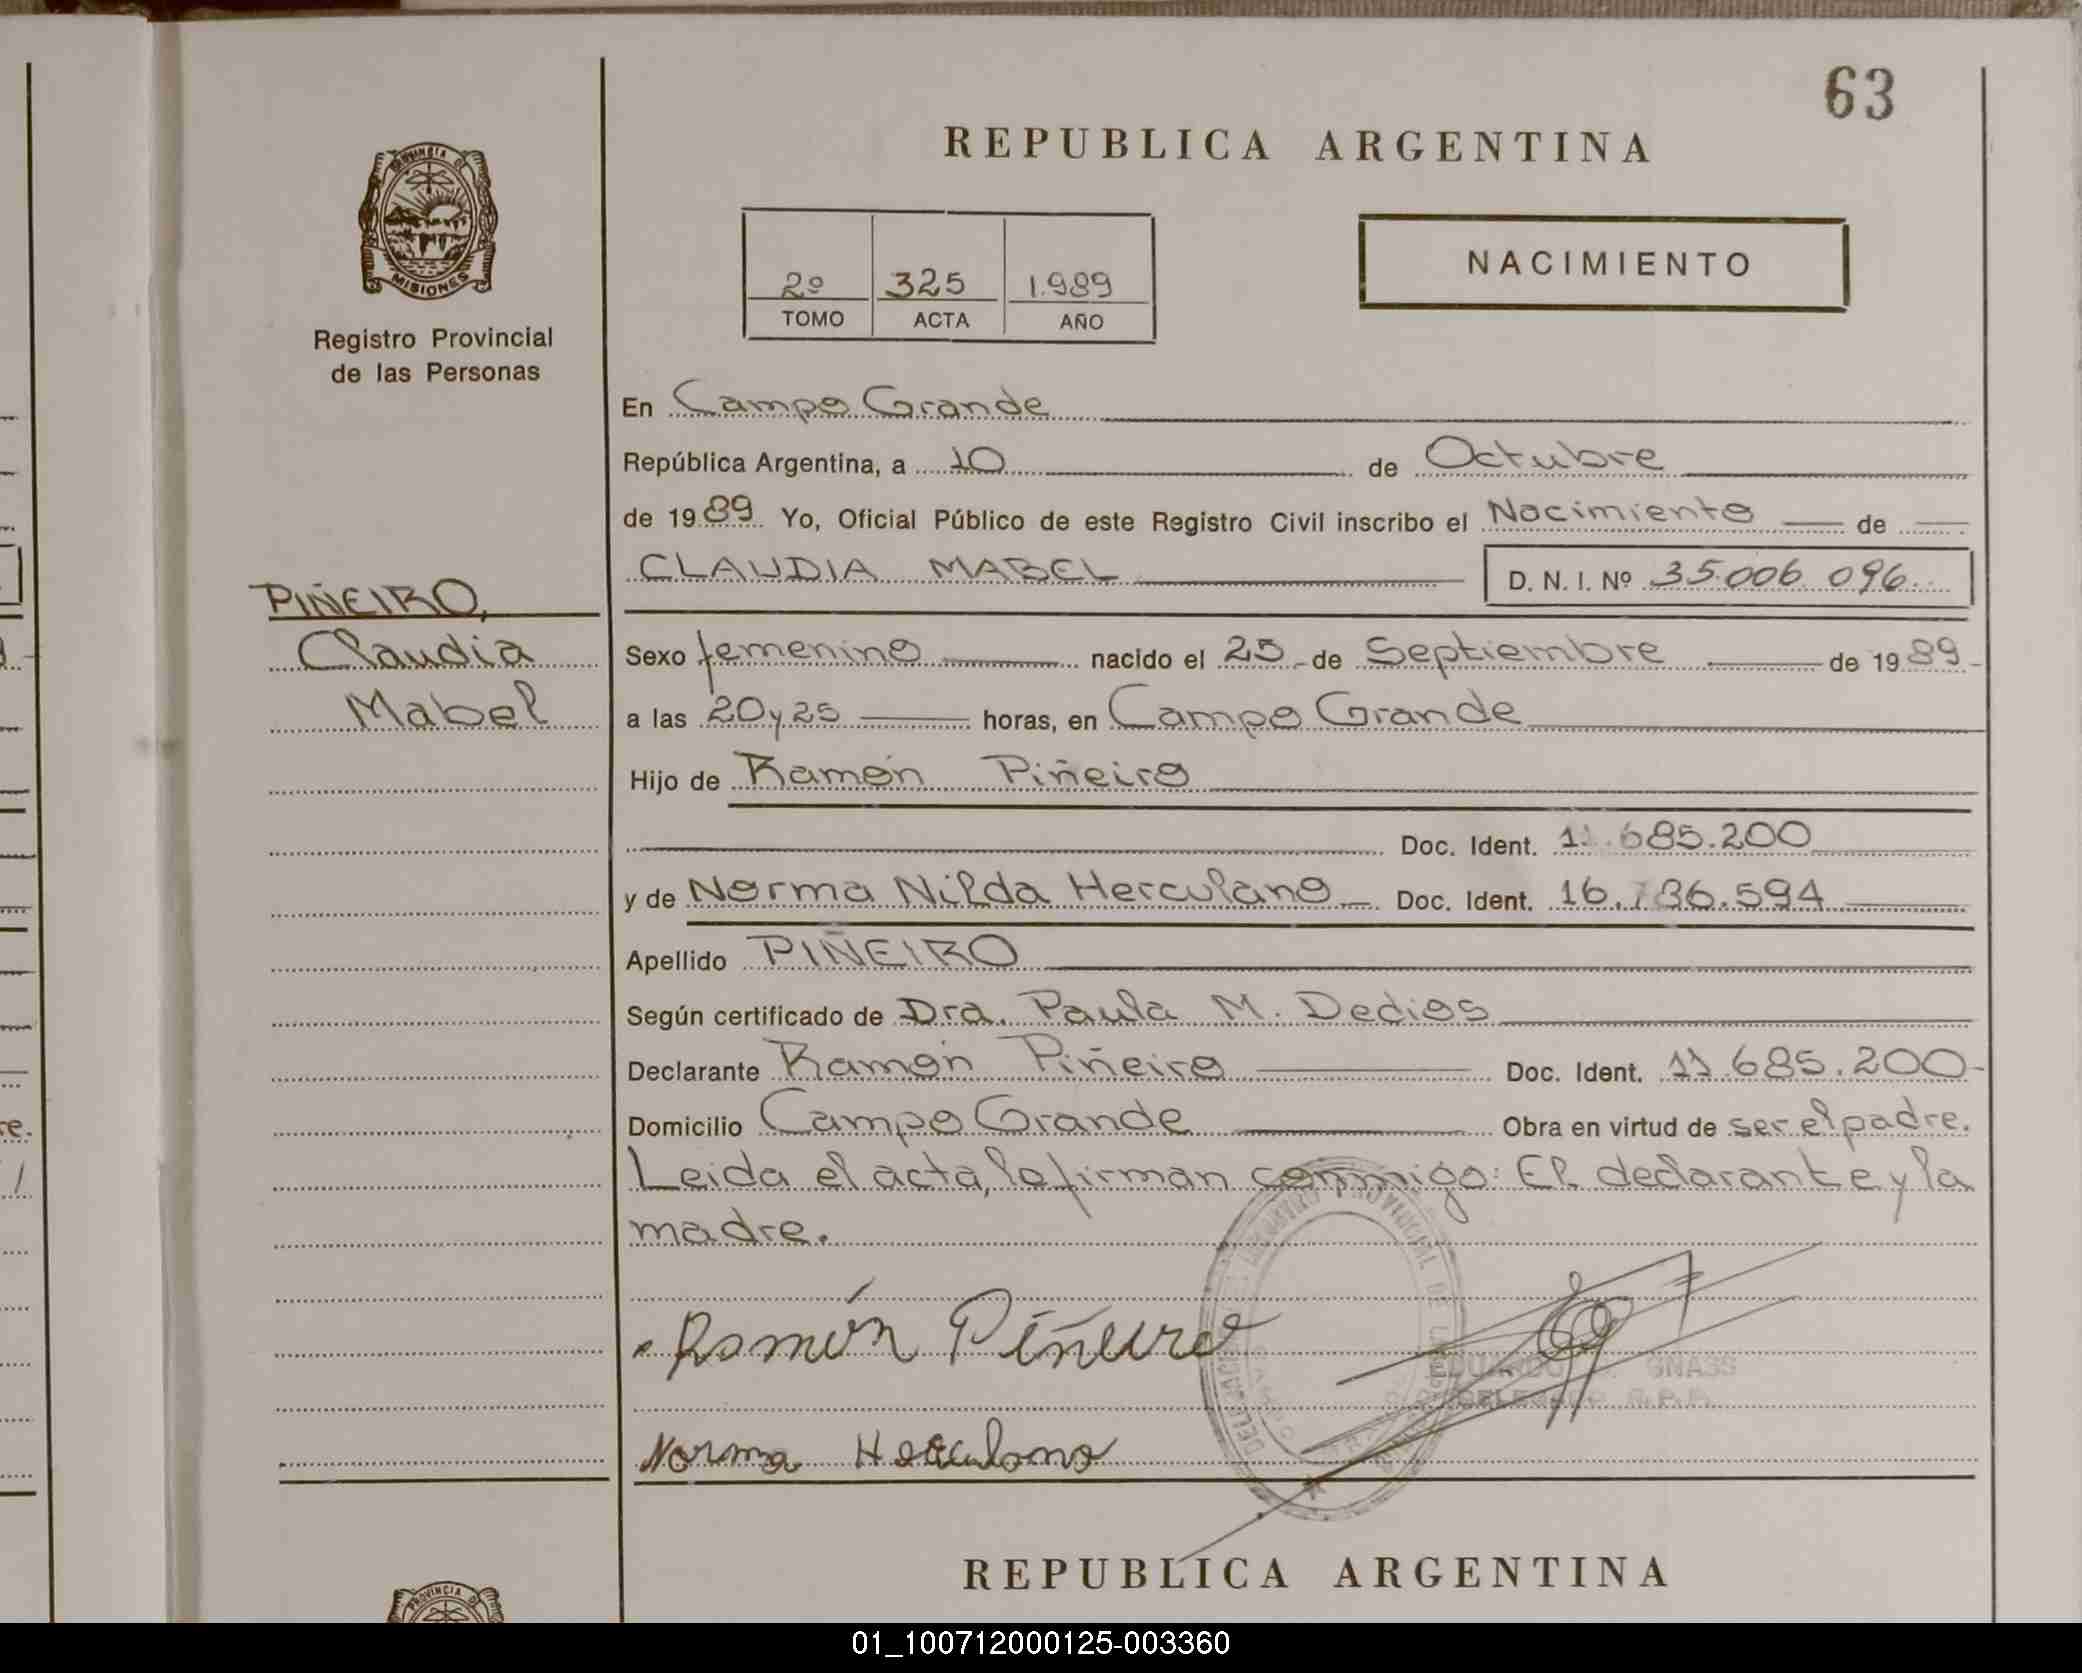 63
REPUBLICA ARGENTINA
PROVINCIA DE
MISIONES
Registro Provincial
de las Personas
2º 325 1.989
TOMO ACTA AÑO
NACIMIENTO
En Campo Grande
República Argentina, a 10 de Octubre
de 1989 Yo, Oficial Público de este Registro Civil inscribo el Nacimiento de
CLAUDIA MABEL D. N. I. Nº 35.006.096
PIÑEIRO,
Claudia
Mabel
Sexo femenino nacido el 25 de Septiembre de 1989
a las 20 y 25 horas, en Campo Grande
Hijo de Ramón Piñeiro
Doc. Ident. 11.685.200
y de Norma Nilda Herculano Doc. Ident. 16.736.594
Apellido PIÑEIRO
Según certificado de Dra. Paula M. Dedios
Declarante Ramón Piñeiro Doc. Ident. 11.685.200
Domicilio Campo Grande Obra en virtud de ser el padre.
Leida el acta, lo firman conmigo: El declarante y la
madre.
Ramón Piñeiro
REGISTRO PROVINCIAL DE LAS
EDUARDO GNASS
DELEGADO R.P.P.
Norma Herculano
REPUBLICA ARGENTINA
PROVINCIA
01_100712000125-003360